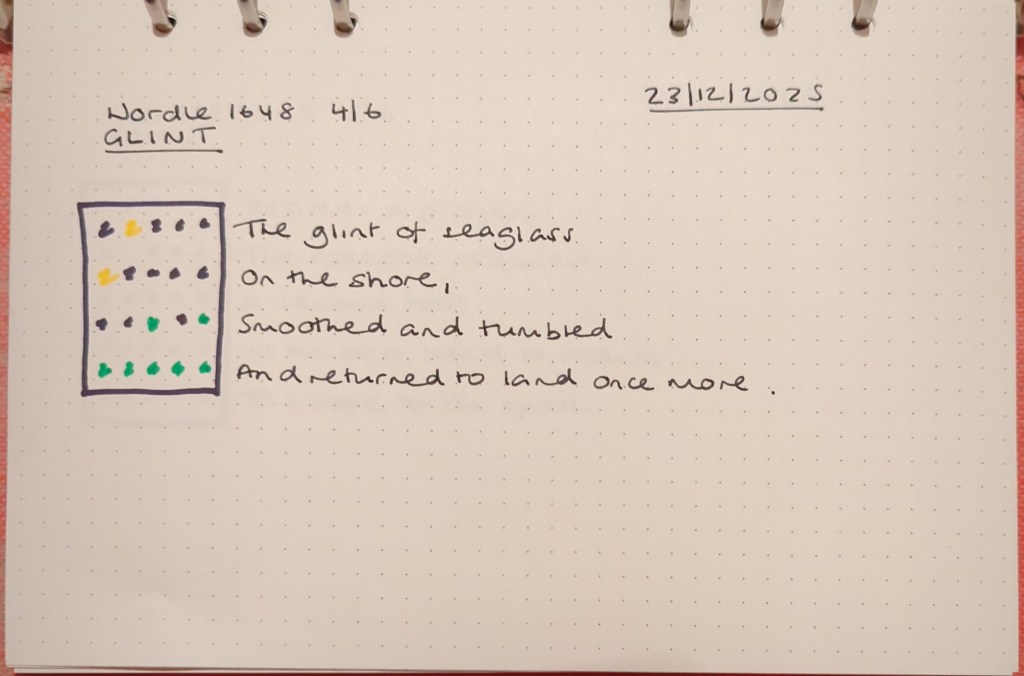 Wordle 1648 4/6
23/12/2025
GLINT
The glint of seaglass
On the shore,
Smoothed and tumbled
And returned to land once more.